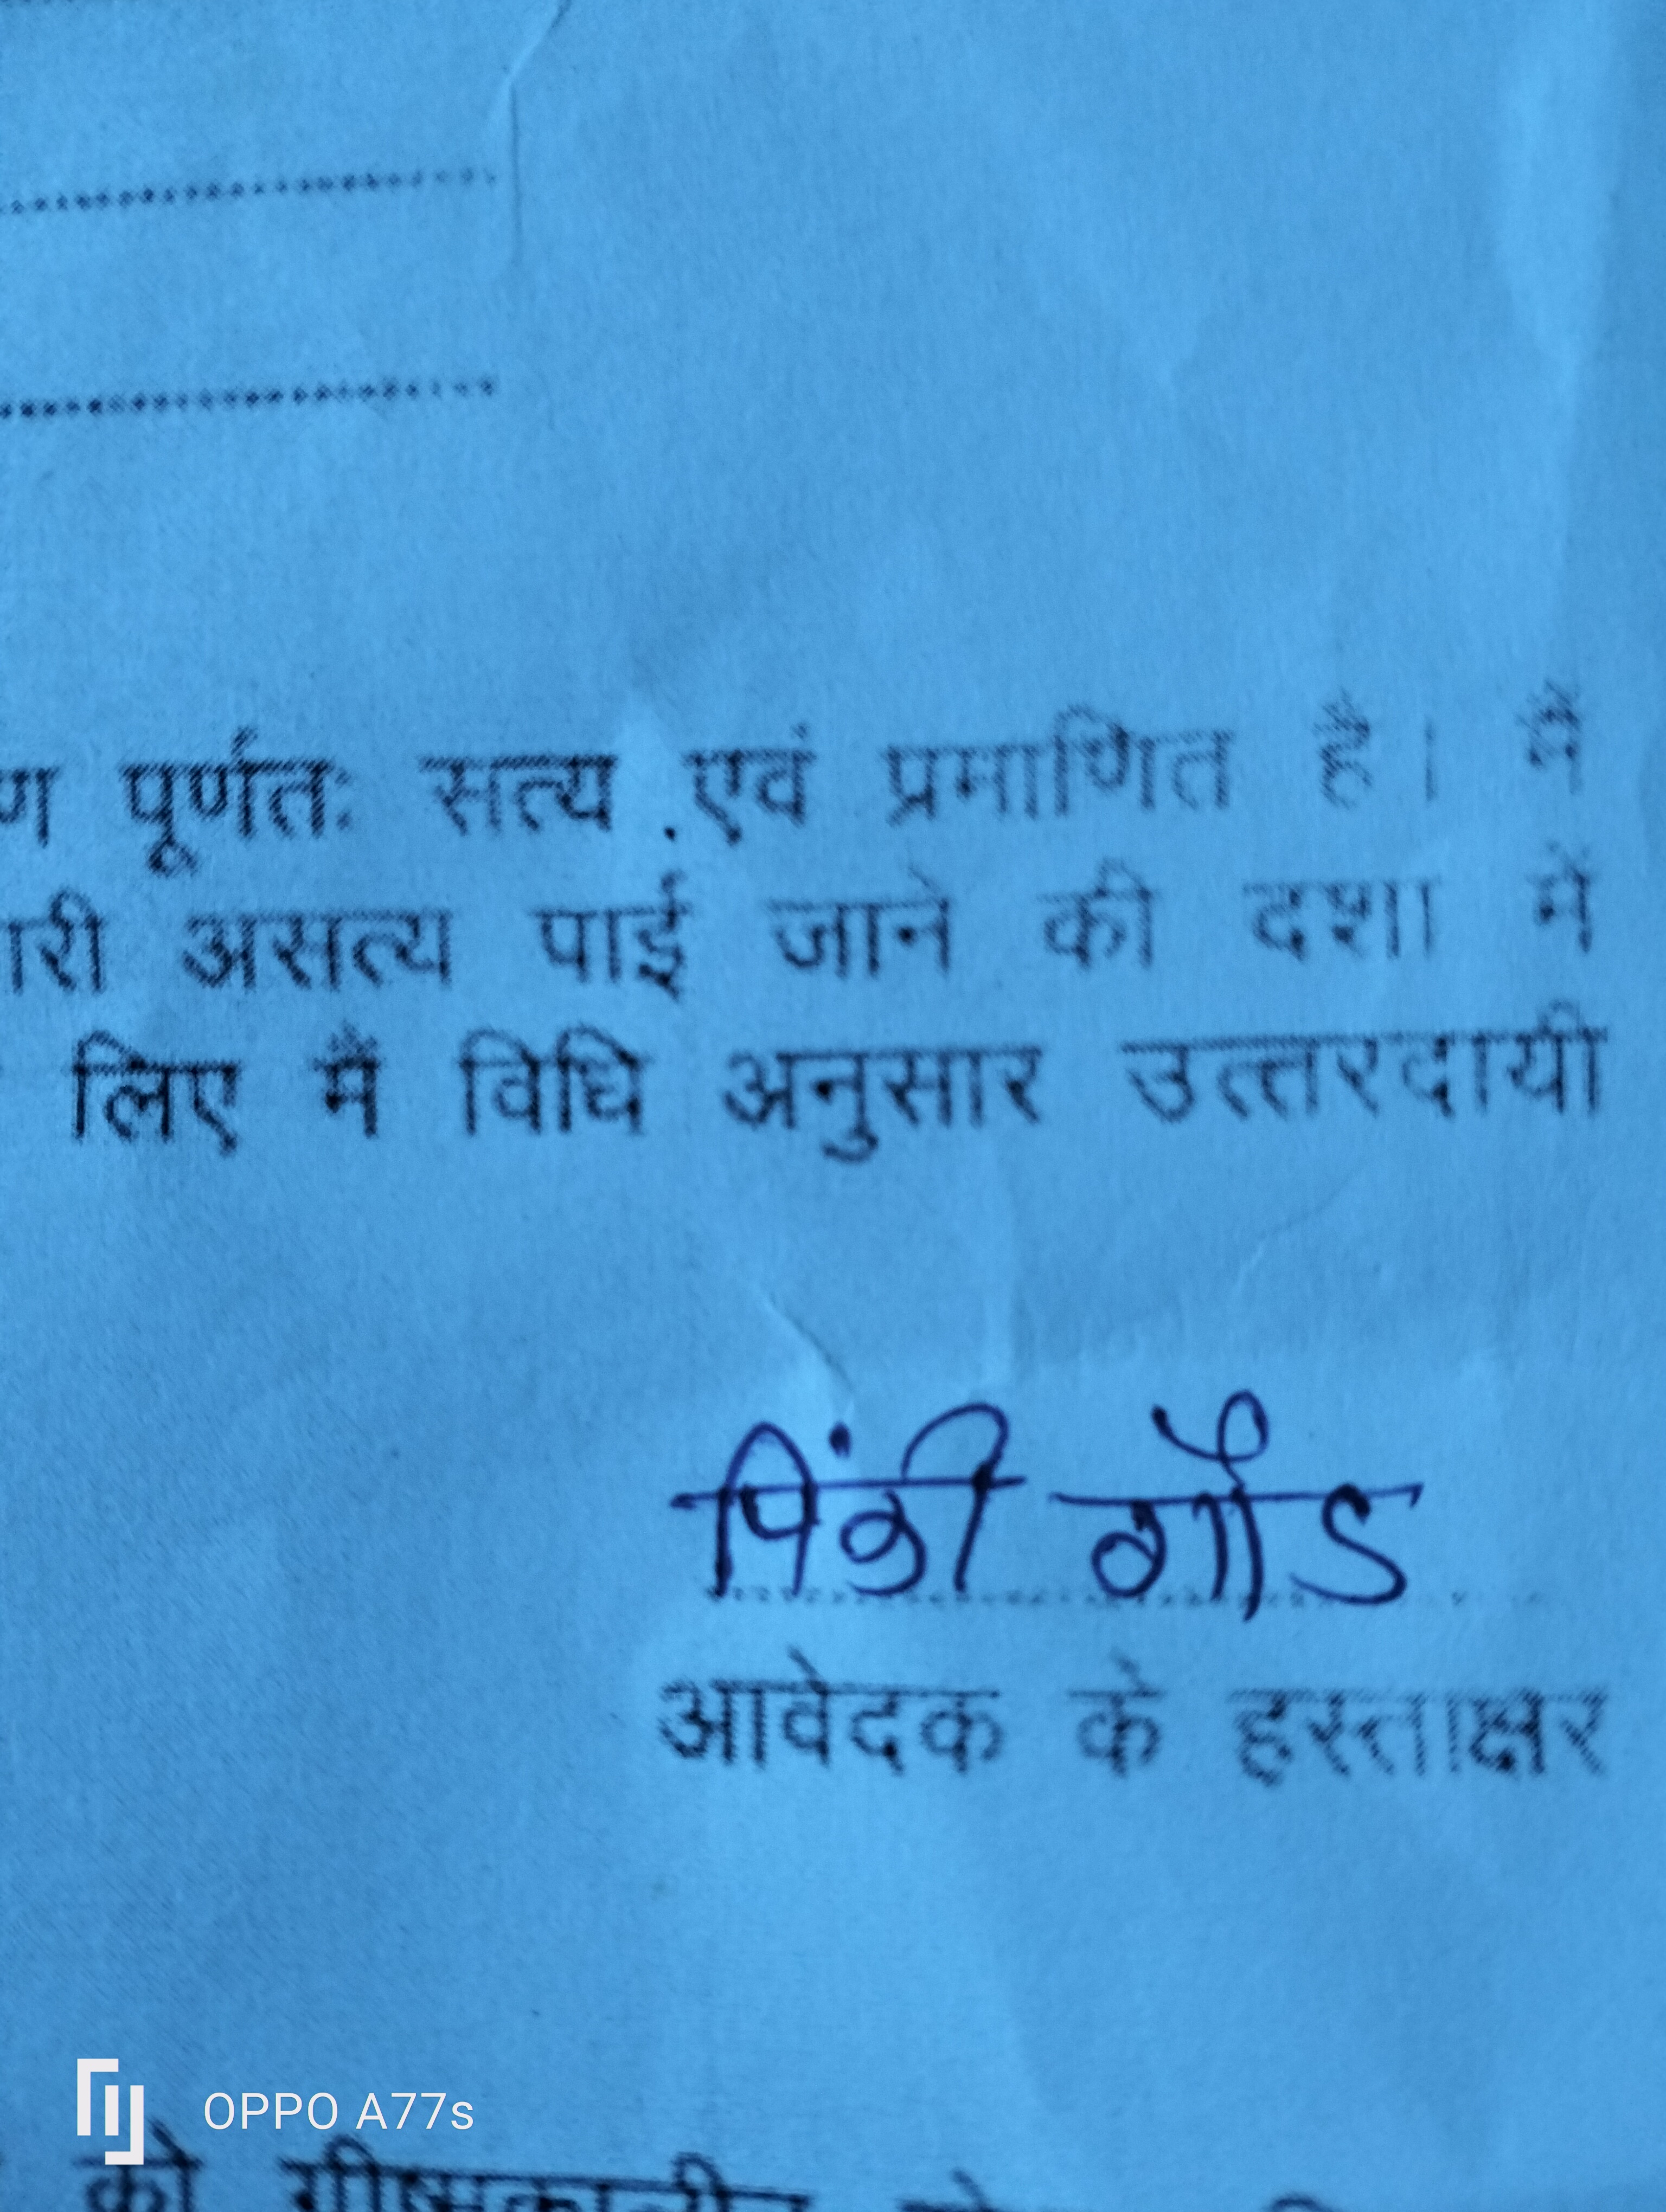 ण पूर्णतः सत्य एवं प्रमाणित है। मैं
ारी असत्य पाई जाने की दशा में
लिए मैं विधि अनुसार उत्तरदायी
पिंकी गौड
आवेदक के हस्ताक्षर
OPPO A77s
को ग्रीष्मकालीन